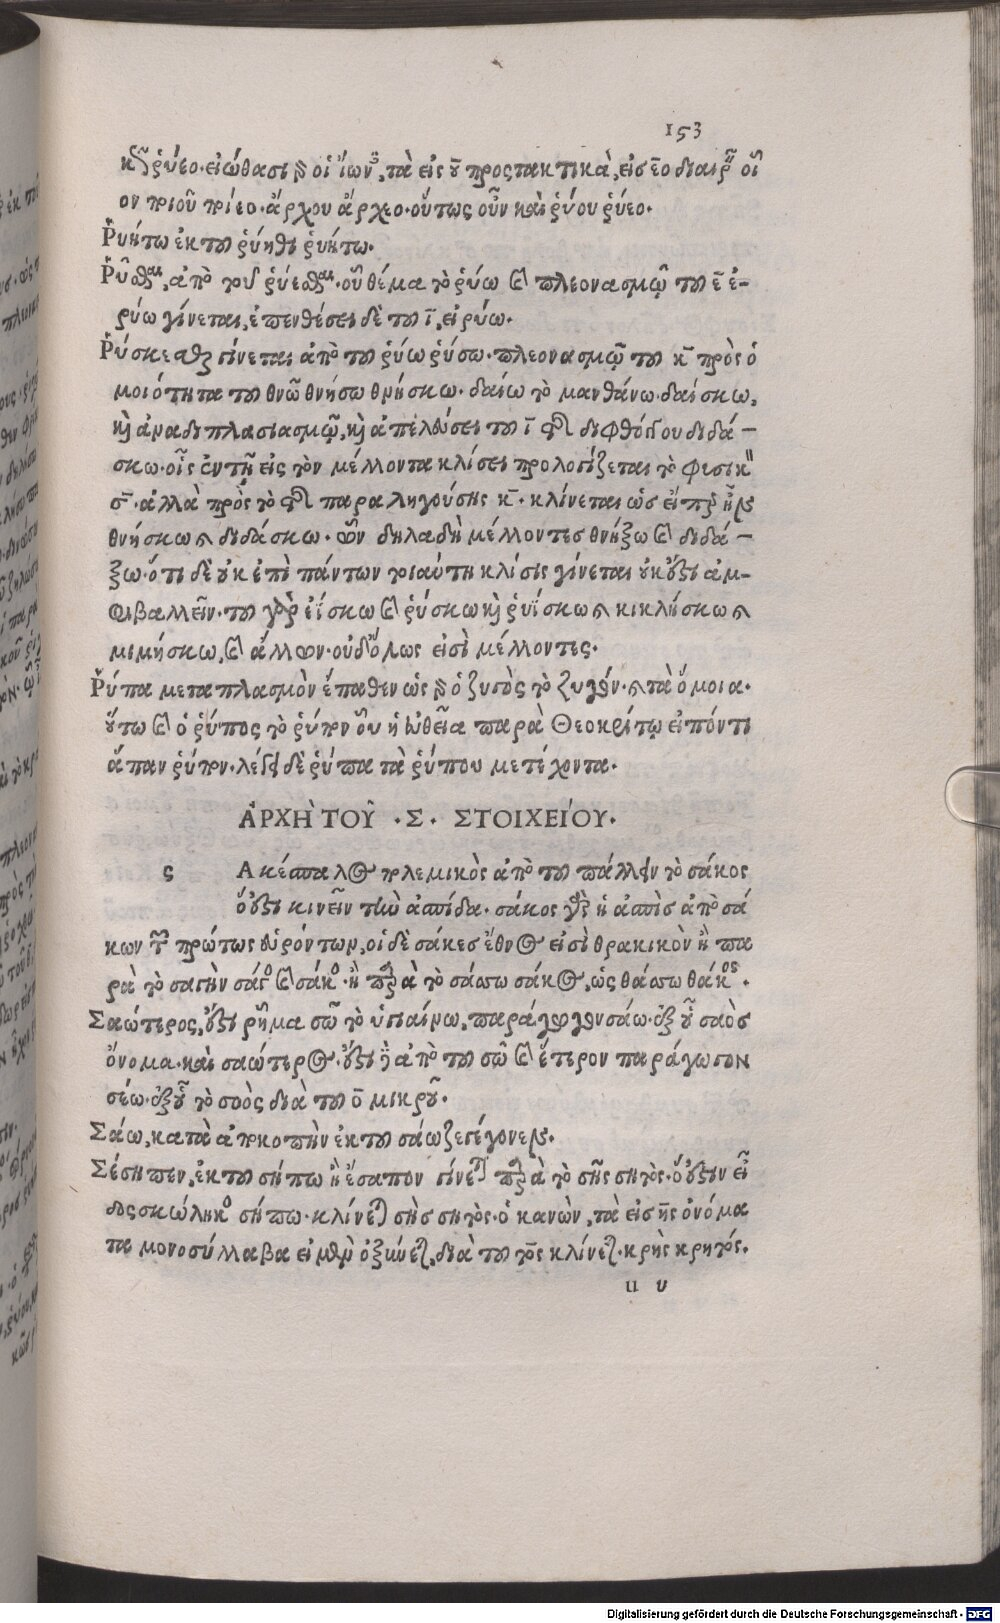 153
ῥύεο· εἰώθασι οἱ ἴωνες, τὰ εἰς ου προστακτικὰ, εἰς εο διαιρεῖν οἷ
ον ποιοῦ ποιέο· ἄρχου ἄρχεο· οὕτως οὖν καὶ ῥύου ῥύεο.
Ῥυήτω ἐκ του ῥύηθι ῥυήτω.
Ῥῦσθαι, ἀπὸ τοῦ ῥύεσθαι· οὗ θέμα τὸ ῥύω καὶ πλεονασμῷ του ε̄ ἐ-
ρύω γίνεται, ἐπενθέσει δὲ του ῑ, εἰρύω.
Ῥύσκεσθαι γίνεται ἀπὸ του ῥύω ῥύσω· πλεονασμῷ του κ̄ πρὸς ὁ
μοιότητα του θνῶ θνήσω θνήσκω· δαίω τὸ μανθάνω· δαίσκω,
καὶ ἀναδιπλασιασμῷ, καὶ ἀπελεύσει του ῑ τῆς διφθόγγου διδά-
σκω· οἷς ἐν τῇ εἰς τὸν μέλλοντα κλίσει προλογίζεται τὸ
σ̄· ἀλλὰ πρὸς τὸ τῆς παραληγούσης κ̄· κλίνεται ὡς εἴπομεν
θνήσκω καὶ διδάσκω· ὧν δηλαδὴ μέλλοντες θνήξω καὶ διδά-
ξω· ὅτι δὲ οὐκ ἐπὶ πάντων τοιαύτη κλίσις γίνεται οὐκ ἔστι ἀμ-
φιβαλλεῖν· του γὰρ ἐΐσκω καὶ ῥύσκω καὶ ῥυΐσκω καὶ κικλήσκω καὶ
μιμήσκω, καὶ ἄλλων· οὐδ' ὅλως εἰσὶ μέλλοντες.
Ῥύπα μεταπλασμὸν ἔπαθεν ὡς ὁ ζυγὸς τὸ ζυγὸν· καὶ τὰ ὅμοια·
οὕτω καὶ ὁ ῥύπος τὸ ῥύπον οὗ ἡ εὐθεῖα παρὰ Θεοκρίτῳ εἰπόντι
ἅπαν ῥύπον· λέγει δὲ ῥύπα τὰ ῥύπου μετέχοντα.
ἈΡΧῊ ΤΟΥ͂ ·Σ· ΣΤΟΙΧΕΊΟΥ.
ς Ακέσπαλος πολεμικὸς ἀπὸ του πάλλειν τὸ σάκος
ὅ ἐστι κινεῖν τὴν ἀσπίδα· σάκος δέ ἡ ἀσπὶς ἀπὸ σά
κων τῶν πρώτως εὑρόντων, οἱ δὲ σάκες ἔθνος εἰσὶ θρακικὸν ἢ πα
ρὰ τὸ σαγὴν σάγος καὶ σάκος· ἢ παρὰ τὸ σάσσω σάκος, ὡς θάσσω θάκος.
Σαώτερος, ἔστι ῥῆμα σῶ τὸ ὑγιαίνω, παράγωγον σάω· ἐξ οὗ σαὸς
ὄνομα· καὶ σαώτερος· ἔστι ἀπὸ του σῶ καὶ ἕτερον παράγωγον
σέω· ἐξ οὗ τὸ σοὸς διὰ του ο̄ μικροῦ.
Σάω, κατὰ ἀποκοπὴν ἐκ του σάωζε γέγονεν.
Σέσηπεν, ἐκ του σήπω ἢ ἔσαπον γίνεται παρὰ τὸ σῆς σητὸς· ὅ ἐστιν εἶ
δος σκώληκος σήπω· κλίνεται σὴς σητὸς· ὁ κανὼν, τὰ εἰς ης ὀνόμα
τα μονοσύλλαβα εἰ μὲν ὀξύνεται, διὰ του τος κλίνεται· κρὴς κρητός.
u υ
Digitalisierung gefördert durch die Deutsche Forschungsgemeinschaft - DFG